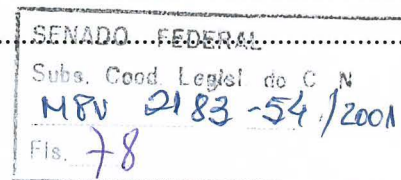 SENADO FEDERAL
Subs. Coord. Legisl. do C N
MPV 2183-54 /2001
Fls. 78